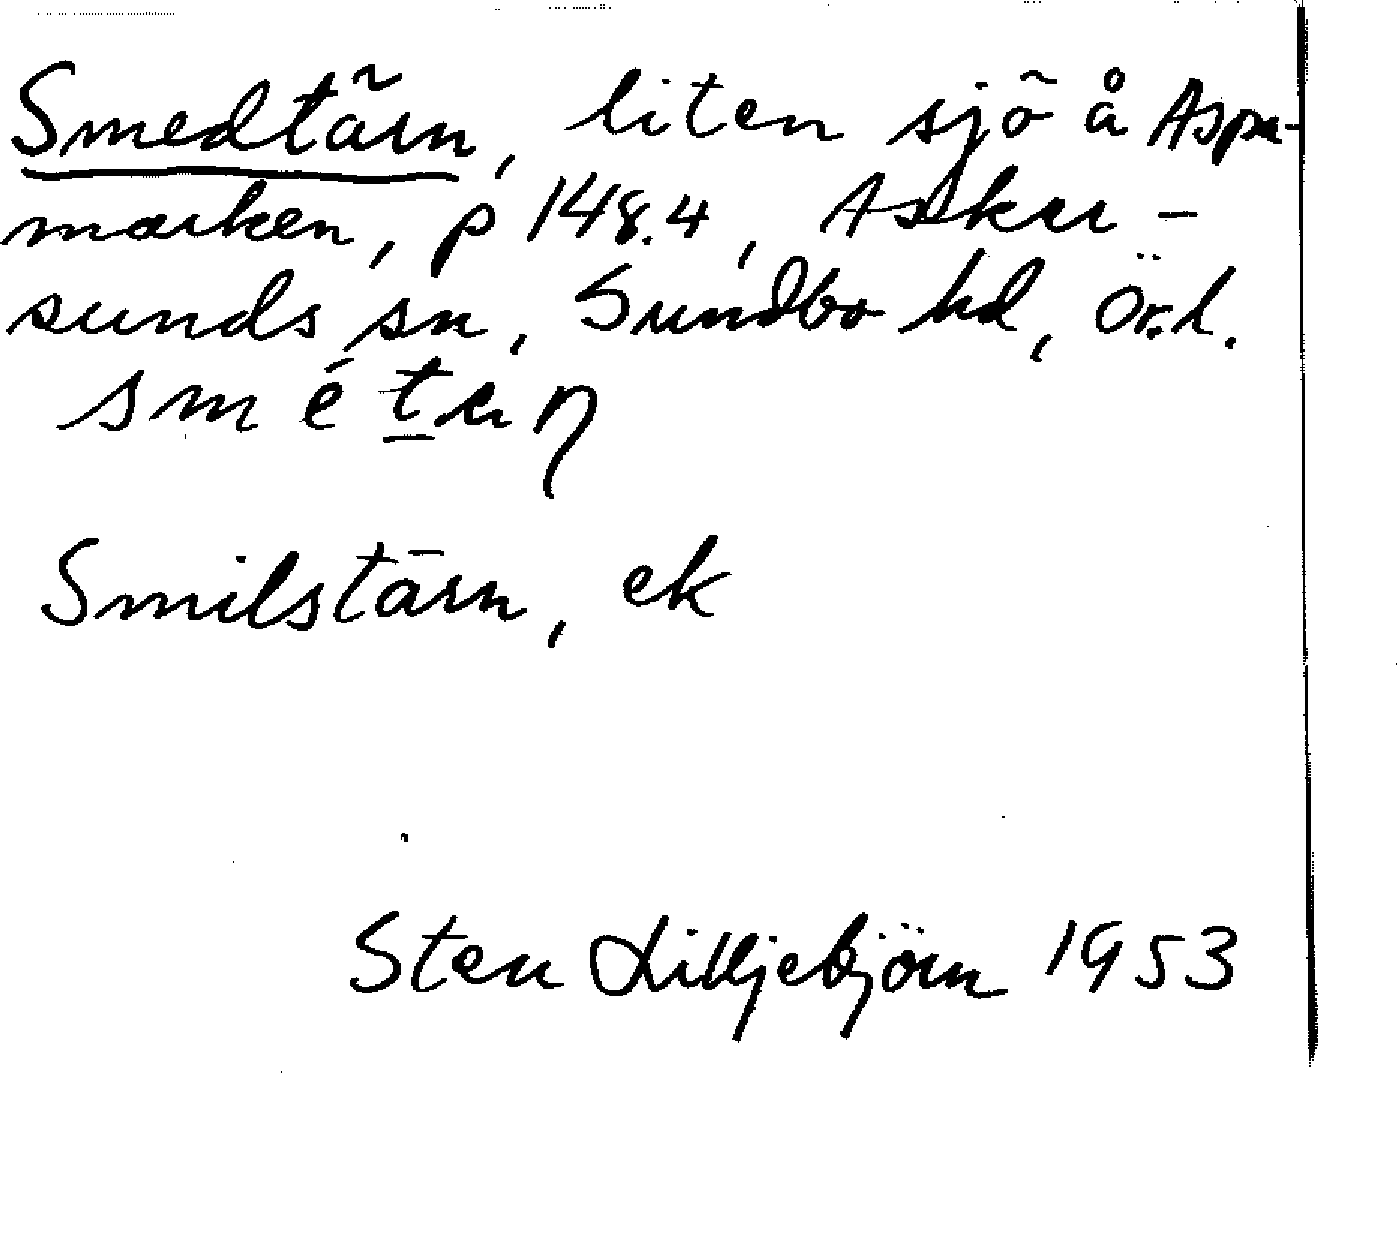 Smedtärn, liten sjö å Aspa-
marken, p 148.4, Asker-
sunds sn, Sundbo hd, Ör.l.
Smilstärn, ek
Sten Lilljebjörn 1953